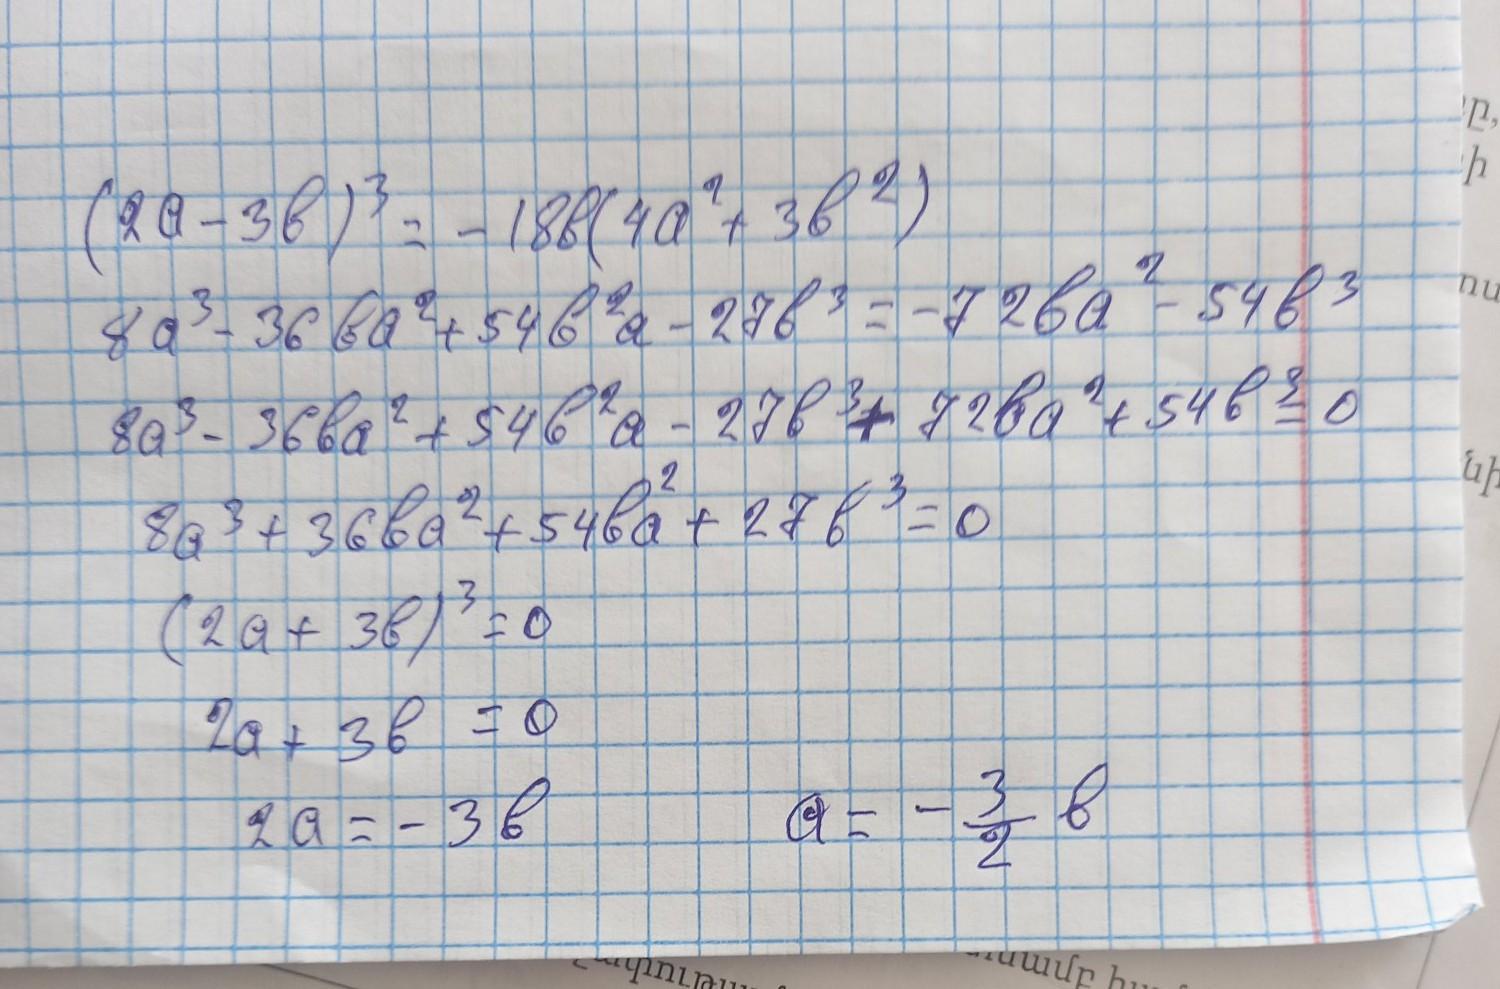 (2a - 3b)³ = - 18b(4a² + 3b²)
8a³ - 36ba² + 54b²a - 27b³ = -72ba² - 54b³
8a³ - 36ba² + 54b²a - 27b³ + 72ba² + 54b³ = 0
8a³ + 36ba² + 54ba² + 27b³ = 0
(2a + 3b)³ = 0
2a + 3b = 0
2a = - 3b a = - 3/2 b